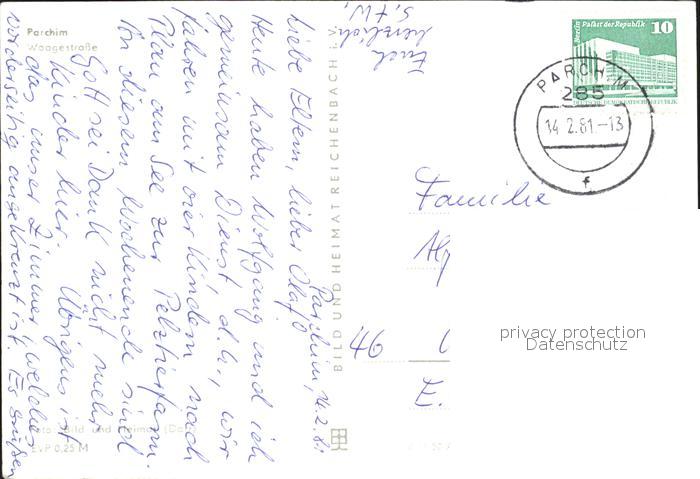 Parchim
Waagestraße
Parchim, 14.2.81
Liebe Eltern, lieber Olaf!
Heute haben Wolfgang und ich
gemeinsam Dienst, d.h., wir
fahren mit vier Kindern nach
Plau am See zur Pelztierfarm.
An diesem Wochenende sind
Gott sei Dank nicht mehr
Kinder hier. Übrigens ist
das unser Zimmer, welches
vorderseitig angekreuzt ist. Es grüßen
Euch
herzlich
Foto: Bild und Heimat
EVP 0,25 M
BILD UND HEIMAT REICHENBACH i. V.
Berlin Palast der Republik 10
DEUTSCHE DEMOKRATISCHE REPUBLIK
PARCHIM
285
14.2.81-13
f
Familie
46
E.
privacy protection
Datenschutz